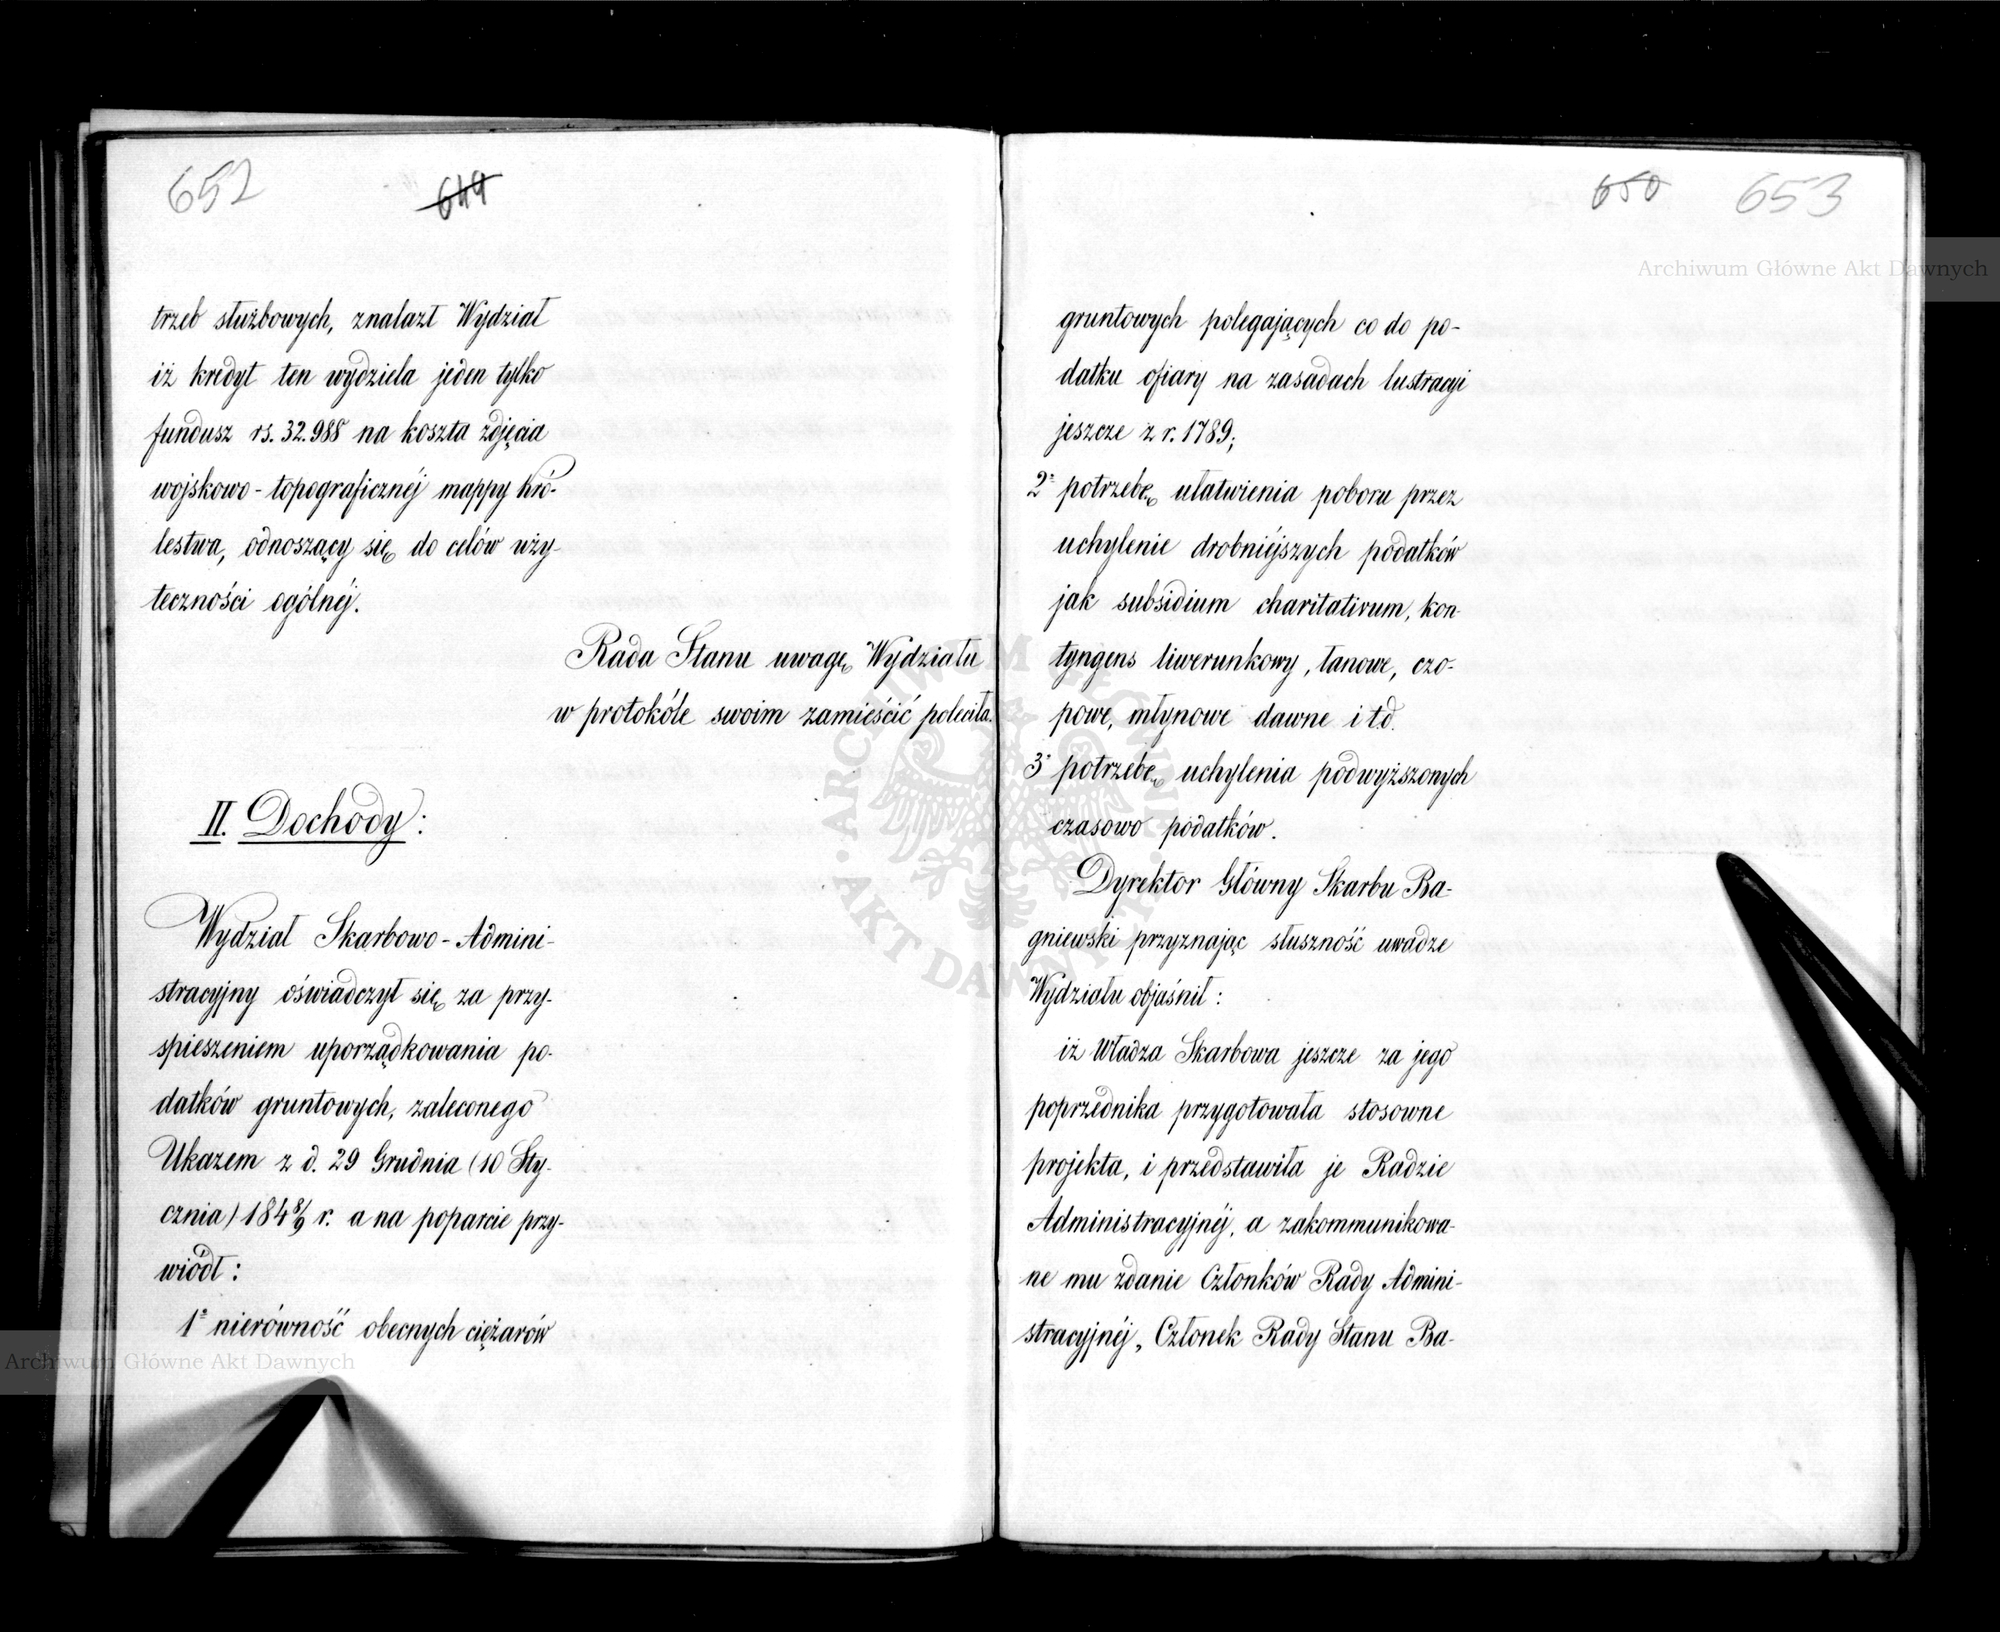 652
649
trzeb służbowych, znalazł Wydział
iż kredyt ten wydziela jeden tylko
fundusz rs. 32.988 na koszta zdjęcia
wojskowo-topograficznéj mappy Kró-
lestwa, odnoszący się do celów uży-
teczności ogólnéj.
Rada Stanu uwagę Wydziału
w protokóle swoim zamieścić poleciła.
II. Dochody:
Wydział Skarbowo-Admini-
stracyjny oświadczył się za przy-
spieszeniem uporządkowania po-
datków gruntowych, zaleconego
Ukazem z d. 29 Grudnia (10 Sty-
cznia) 184 8/9 r. a na poparcie przy-
wiódł:
1º nierówność obecnych ciężarów
650
653
gruntowych polegających co do po-
datku ofiary na zasadach lustracyi
jeszcze z r. 1789;
2º potrzebę ułatwienia poboru przez
uchylenie drobniéjszych podatków
jak subsidium charitativum, kon-
tyngens liwerunkowy, łanowe, czo-
powe, młynowe dawne i t.d.
3º potrzebę uchylenia podwyższonych
czasowo podatków.
Dyrektor Główny Skarbu Ba-
gniewski przyznając słuszność uwadze
Wydziału objaśnił:
iż Władza Skarbowa jeszcze za jego
poprzednika przygotowała stosowne
projekta, i przedstawiła je Radzie
Administracyjnéj, a zakommunikowa-
ne mu zdanie Członków Rady Admini-
stracyjnéj, Członek Rady Stanu Ba-
Archiwum Główne Akt Dawnych
Archiwum Główne Akt Dawnych
ARCHIWUM GŁÓWNE
AKT DAWNYCH